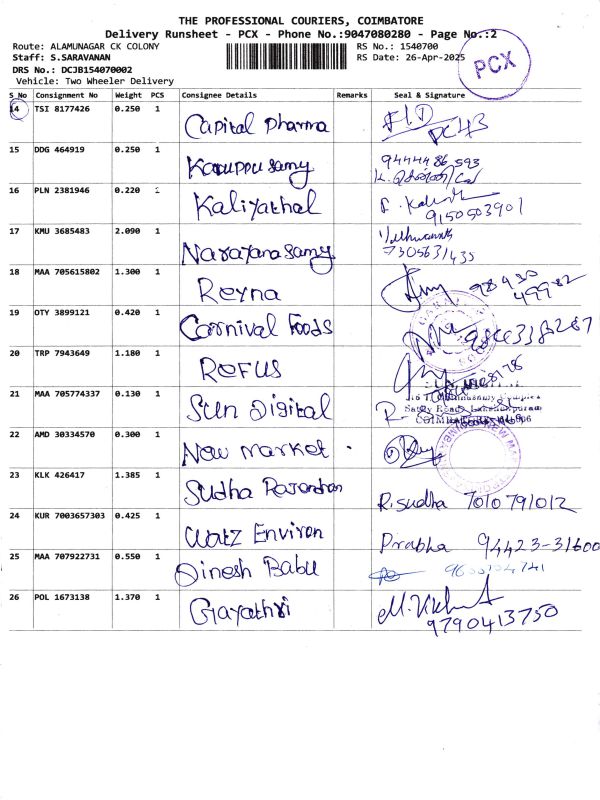 THE PROFESSIONAL COURIERS, COIMBATORE
Delivery Runsheet - PCX - Phone No.:9047080280 - Page No.:2
Route: ALAMUNAGAR CK COLONY
RS No.: 1540700
Staff: S.SARAVANAN
RS Date: 26-Apr-2025
DRS No.: DCJB154070002
Vehicle: Two Wheeler Delivery
PCX
S_No Consignment No Weight PCS Consignee Details Remarks Seal & Signature
14 TSI 8177426 0.250 1 Capital Pharma
15 DDG 464919 0.250 1 Karuppusamy 9444486593
16 PLN 2381946 0.220 1 Kaliyathal 9150503901
17 KMU 3685483 2.090 1 Narayanasamy 7305631435
18 MAA 705615802 1.300 1 Reyna 98430 49982
19 OTY 3899121 0.420 1 Carnival Foods
20 TRP 7943649 1.180 1 ROFUS
21 MAA 705774337 0.130 1 Sun Digital
22 AMD 30334570 0.300 1 New Market
23 KLK 426417 1.385 1 Sudha Rajendran R. Sudha 7010791012
24 KUR 7003657303 0.425 1 Watz Environ Prabha 94423-31600
25 MAA 707922731 0.550 1 Dinesh Babu
26 POL 1673138 1.370 1 Gayathri 9790413750